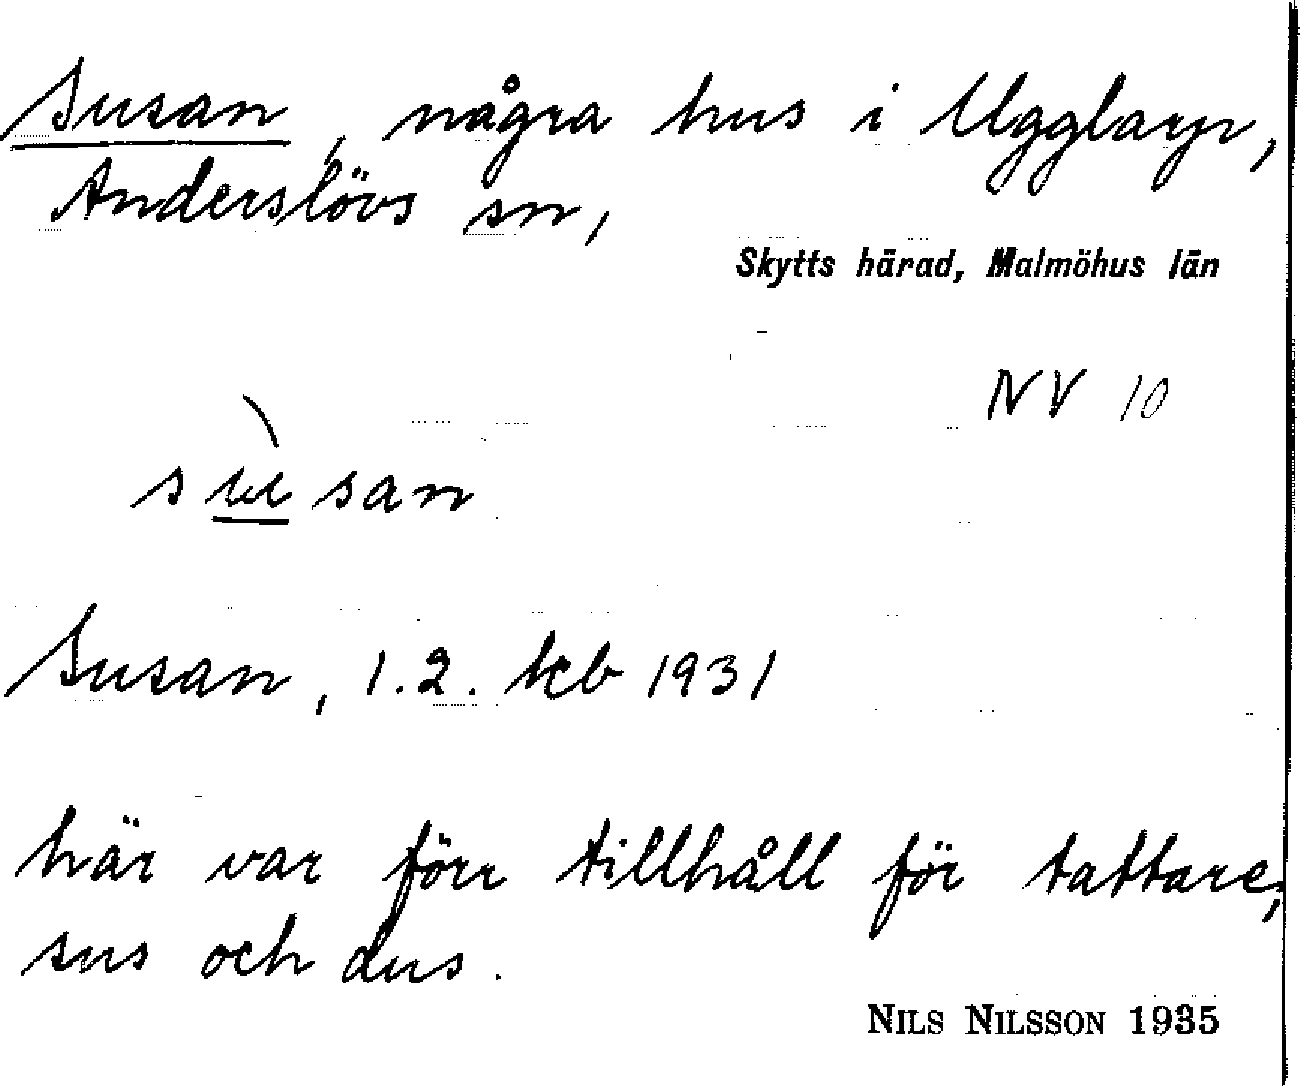 Susan, några hus i Ugglarp,
Anderslövs sn,
Skytts härad, Malmöhus län
NV 10
sùsan
Susan, 1.2. kb 1931
här var förr tillhåll för tattare;
sus och dus.
NILS NILSSON 1935